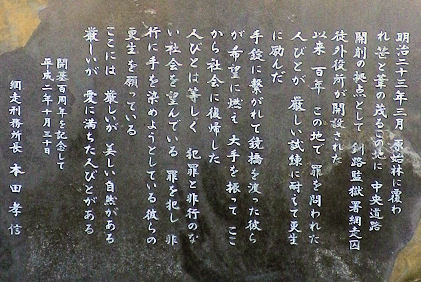 明治二十三年三月 原始林に覆わ
れ 笹と葦の茂るこの地に 中央道路
開削の拠点として 釧路監獄署網走囚
徒外役所が開設された
以来百年 この地で 罪を問われた
人びとが 厳しい試練に耐えて更生
に励んだ
手錠に繋がれて鏡橋を渡った彼ら
が 希望に燃え 大手を振って ここ
から社会に復帰した
人びとは等しく 犯罪と非行のな
い社会を望んでいる 罪を犯し 非
行に手を染めようとしている彼らの
更生を願っている
ここには 厳しいが 美しい自然がある
厳しいが 愛に満ちた人びとがある
開基百周年を記念して
平成二年十月三十日
網走刑務所長 本田孝信